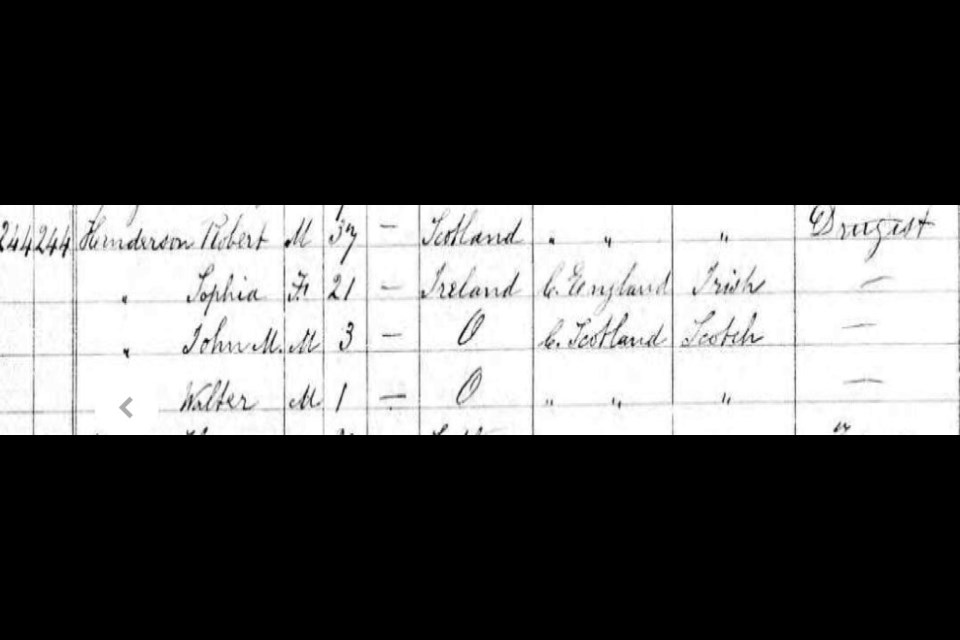 244 244 Henderson Robert M 37 — Scotland " " " Drugist
" Sophia F 21 — Ireland C. England Irish —
" John M. M 3 — O C. Scotland Scotch —
Walter M 1 — O " " " —